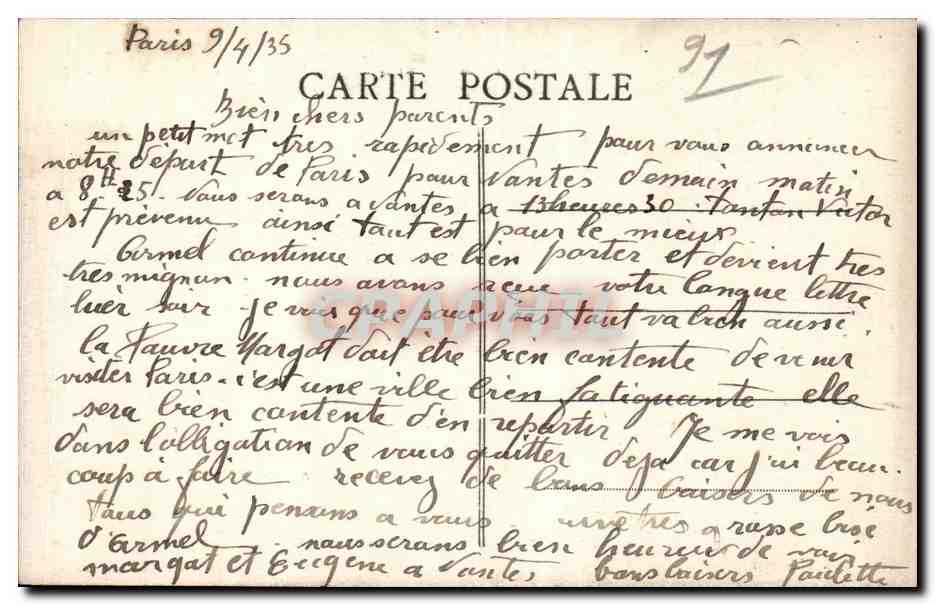 Paris 9/4/35
91
CARTE POSTALE
Bien chers parents
un petit mot tres rapidement pour vous annoncer
notre départ de Paris pour Nantes demain matin
a 8H 25. Nous serons a Nantes a 13 heures 30. Tonton Victor
est prévenu ainsi tout est pour le mieux
Armel continue a se bien porter et devient tres
tres mignon. nous avons reçue votre longue lettre
hier soir. je vois que pour vous tout va bien aussi.
la Pauvre Margot doit être bien contente de venir
visiter Paris. c'est une ville bien fatiguante elle
sera bien contente d'en repartir Je me vois
dans l'obligation de vous quitter deja car j'ai beau-
coup a faire recevez de bons baisers de nous
tous qui pensons a vous. une tres grosse bise
d'Armel. nous serons bien heureux de voir
margot et Eugène a Nantes bons baisers Paulette
CPAPHIL